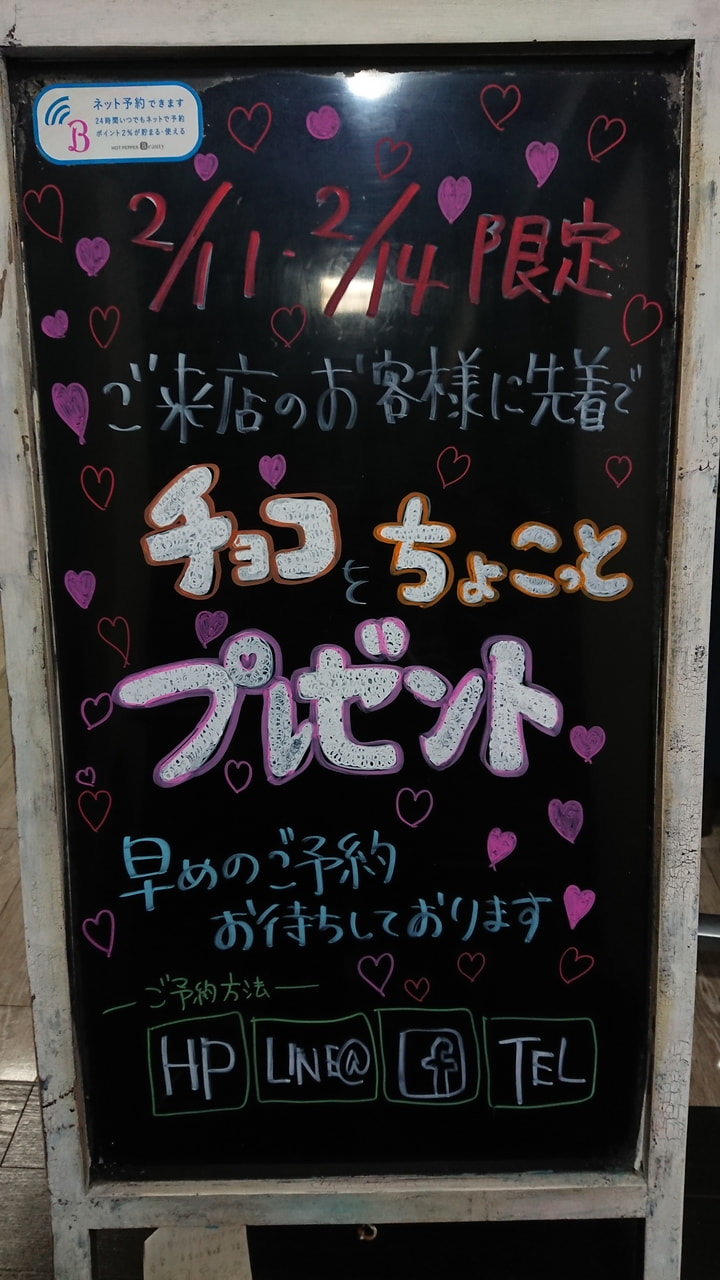 ネット予約できます
24時間いつでもネットで予約
ポイント2%が貯まる・使える
B
HOT PEPPER Beauty
2/11・2/14 限定
ご来店のお客様に先着で
チョコをちょこっと
プレゼント
早めのご予約
お待ちしております
ーご予約方法ー
HP LINE@ f TEL